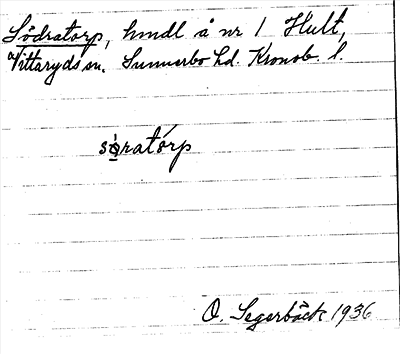 Södratorp, hmdl å nr 1 Hult,
Vittaryds sn. Sunnerbo hd. Kronob. l.
sò̱ratórp
O. Segerbäck 1936